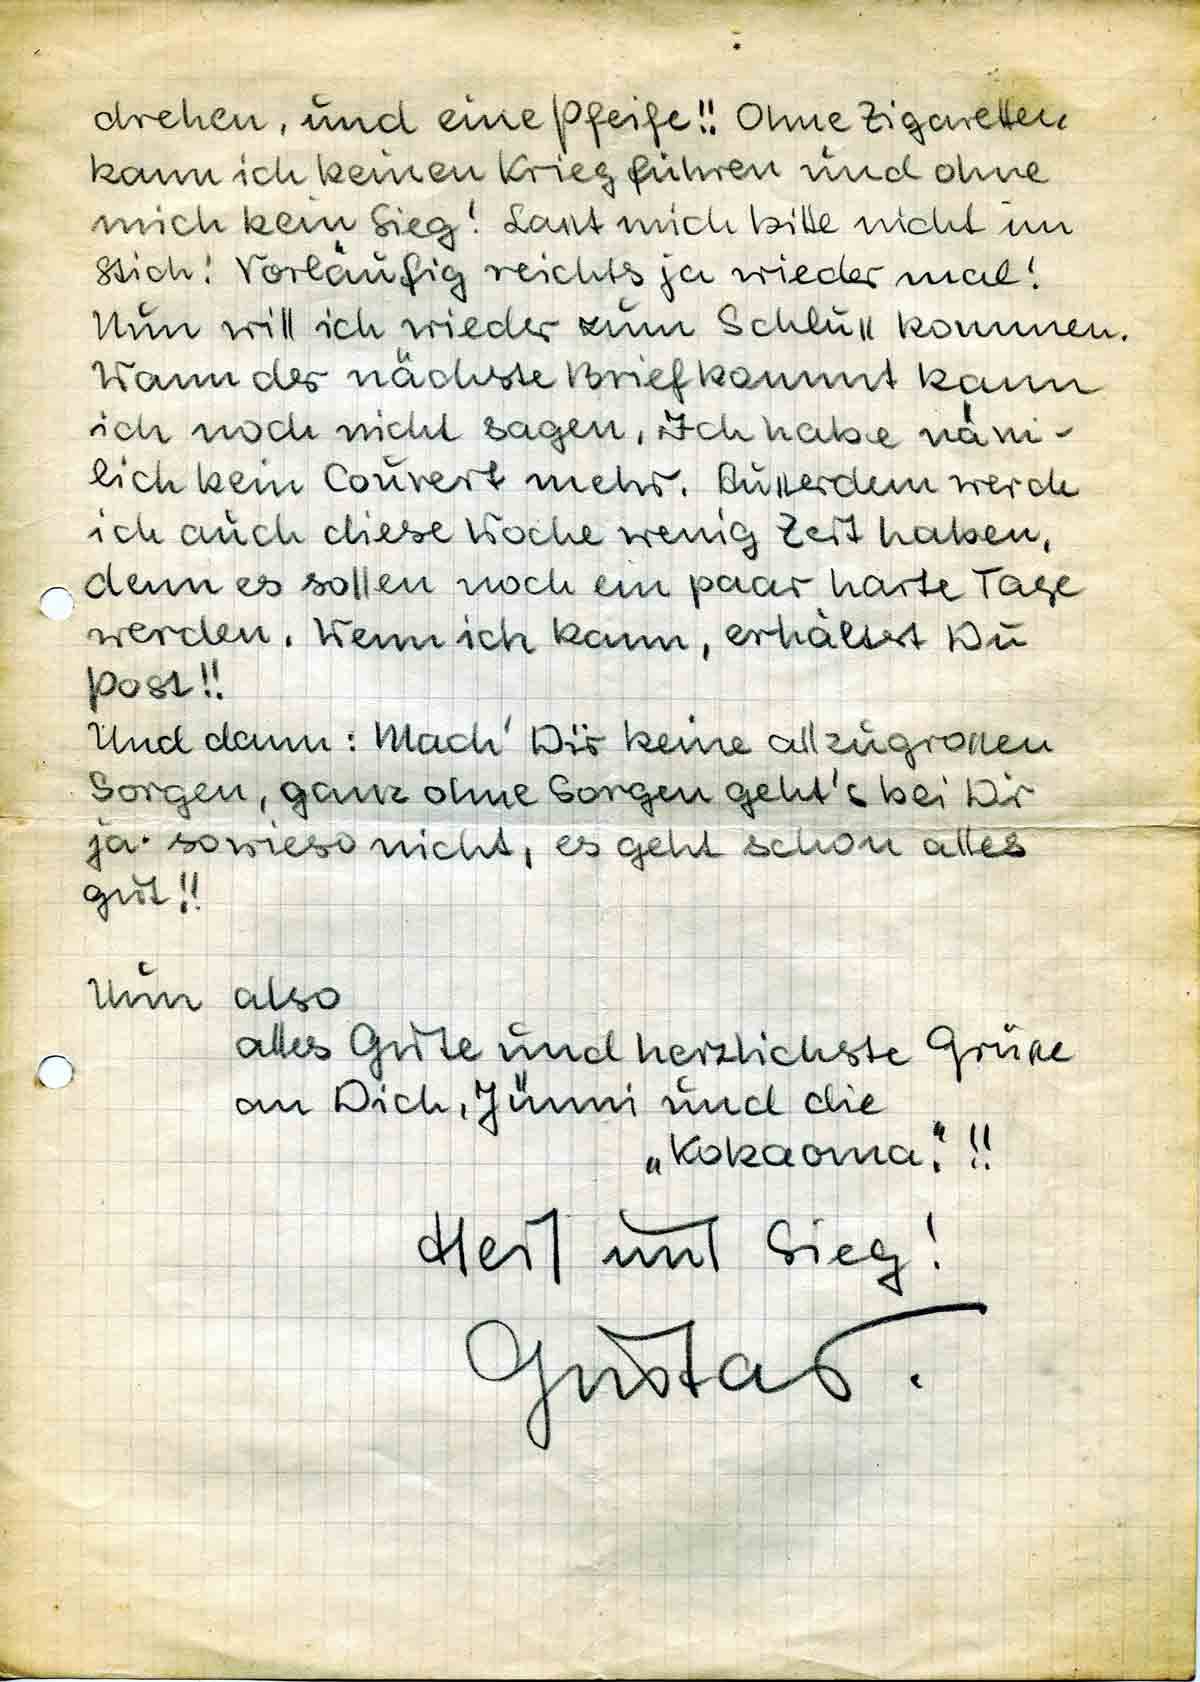 drehen, und eine Pfeife!! Ohne Zigaretten
kann ich keinen Krieg führen und ohne
mich kein Sieg! Lasst mich bitte nicht im
Stich! Vorläufig reichts ja wieder mal!
Nun will ich wieder zum Schluss kommen.
Wann der nächste Brief kommt kann
ich noch nicht sagen, Ich habe näm-
lich kein Couvert mehr. Ausserdem werde
ich auch diese Woche wenig Zeit haben,
denn es sollen noch ein paar harte Tage
werden. Wenn ich kann, erhältst Du
Post!!
Und dann: Mach' Dir keine allzugrossen
Sorgen, ganz ohne Sorgen geht's bei Dir
ja sowieso nicht, es geht schon alles
gut!!
Nun also
alles Gute und herzlichste Grüsse
an Dich, Jünni und die
„Kokaoma."!!
Heil und Sieg!
Gustav.